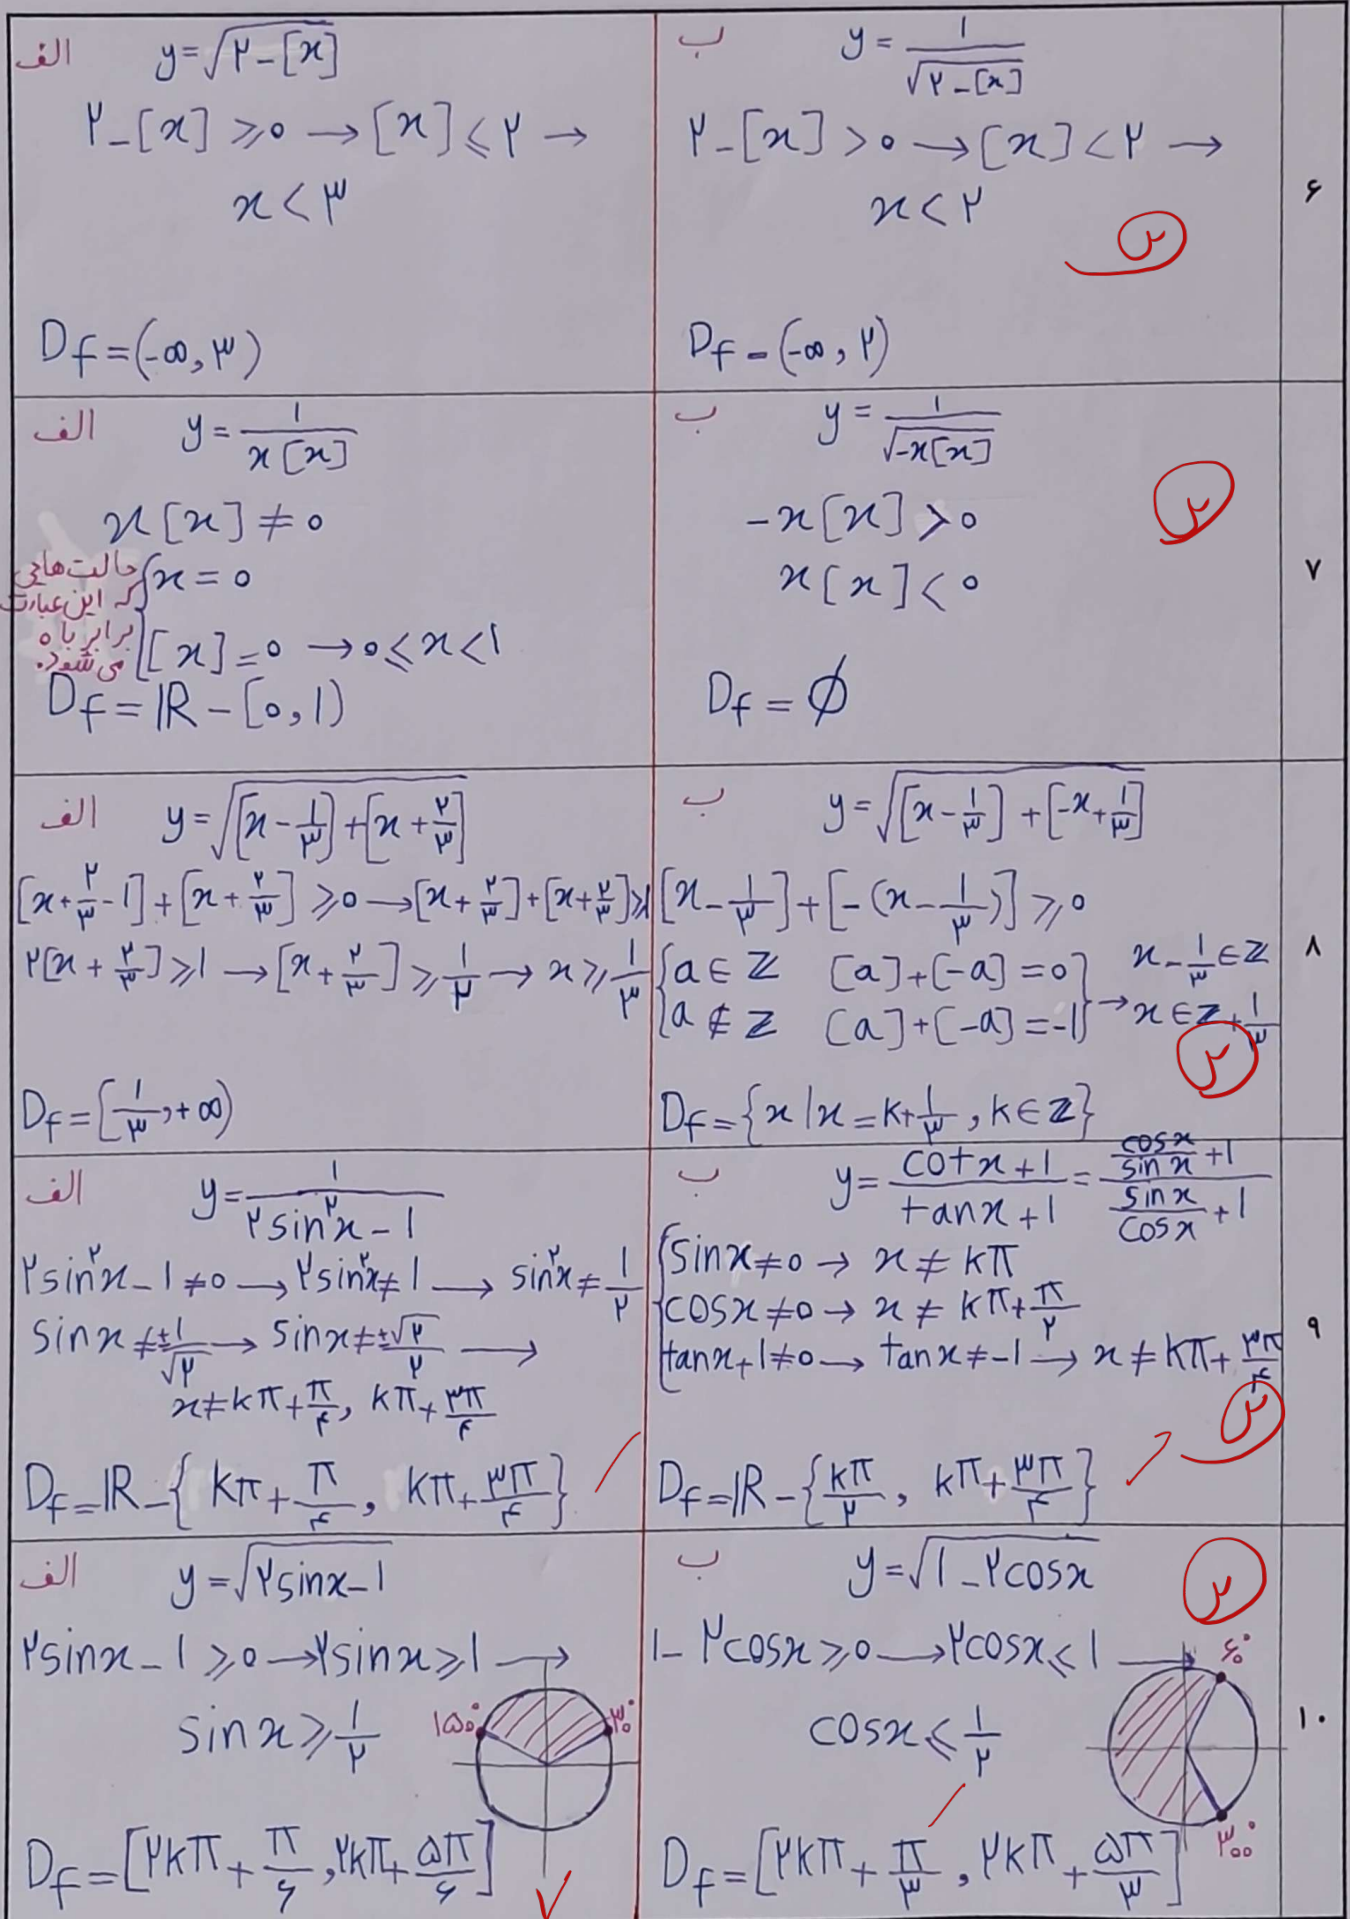 الف y = √۲-[x]
۲-[x] ⩾ ۰ → [x] ⩽ ۲ →
x < ۳
Df = (-∞, ۳)
ب y = ۱/√۲-[x]
۲-[x] > ۰ → [x] < ۲ →
x < ۲
Df = (-∞, ۲)
۲
۶
الف y = ۱/x[x]
x[x] ≠ ۰
حالت هایی که این عبارت برابر با ۰ می‌شود.
{x = ۰
[x] = ۰ → ۰ ⩽ x < ۱
Df = ℝ - [۰, ۱)
ب y = ۱/√-x[x]
-x[x] > ۰
x[x] < ۰
Df = ∅
۲
۷
الف y = √[x - ۱/۳] + [x + ۲/۳]
[x + ۲/۳ - ۱] + [x + ۲/۳] ⩾ ۰ → [x + ۲/۳] + [x + ۲/۳] ⩾ ۱
۲[x + ۲/۳] ⩾ ۱ → [x + ۲/۳] ⩾ ۱/۲ → x ⩾ ۱/۳
Df = [۱/۳, +∞)
ب y = √[x - ۱/۳] + [-x + ۱/۳]
[x - ۱/۳] + [-(x - ۱/۳)] ⩾ ۰
{a ∈ ℤ [a] + [-a] = ۰
a ∉ ℤ [a] + [-a] = -۱} → x - ۱/۳ ∈ ℤ
x ∈ ℤ + ۱/۳
Df = {x | x = k + ۱/۳, k ∈ ℤ}
۲
۸
الف y = ۱/۲sin²x - ۱
۲sin²x - ۱ ≠ ۰ → ۲sin²x ≠ ۱ → sin²x ≠ ۱/۲
sin x ≠ ±۱/√۲ → sin x ≠ ±√۲/۲ →
x ≠ kπ + π/۴, kπ + ۳π/۴
Df = ℝ - {kπ + π/۴, kπ + ۳π/۴}
ب y = cot x + ۱/tan x + ۱ = (cos x/sin x + ۱)/(sin x/cos x + ۱)
{sin x ≠ ۰ → x ≠ kπ
cos x ≠ ۰ → x ≠ kπ + π/۲
tan x + ۱ ≠ ۰ → tan x ≠ -۱ → x ≠ kπ + ۳π/۴
Df = ℝ - {kπ/۲, kπ + ۳π/۴}
۲
۹
الف y = √۲sin x - ۱
۲sin x - ۱ ⩾ ۰ → ۲sin x ⩾ ۱ →
sin x ⩾ ۱/۲
۱۵۰° ۳۰°
Df = [۲kπ + π/۶, ۲kπ + ۵π/۶]
ب y = √۱ - ۲cos x
۱ - ۲cos x ⩾ ۰ → ۲cos x ⩽ ۱ →
cos x ⩽ ۱/۲
۶۰°
۳۰۰°
Df = [۲kπ + π/۳, ۲kπ + ۵π/۳]
۲
۱۰